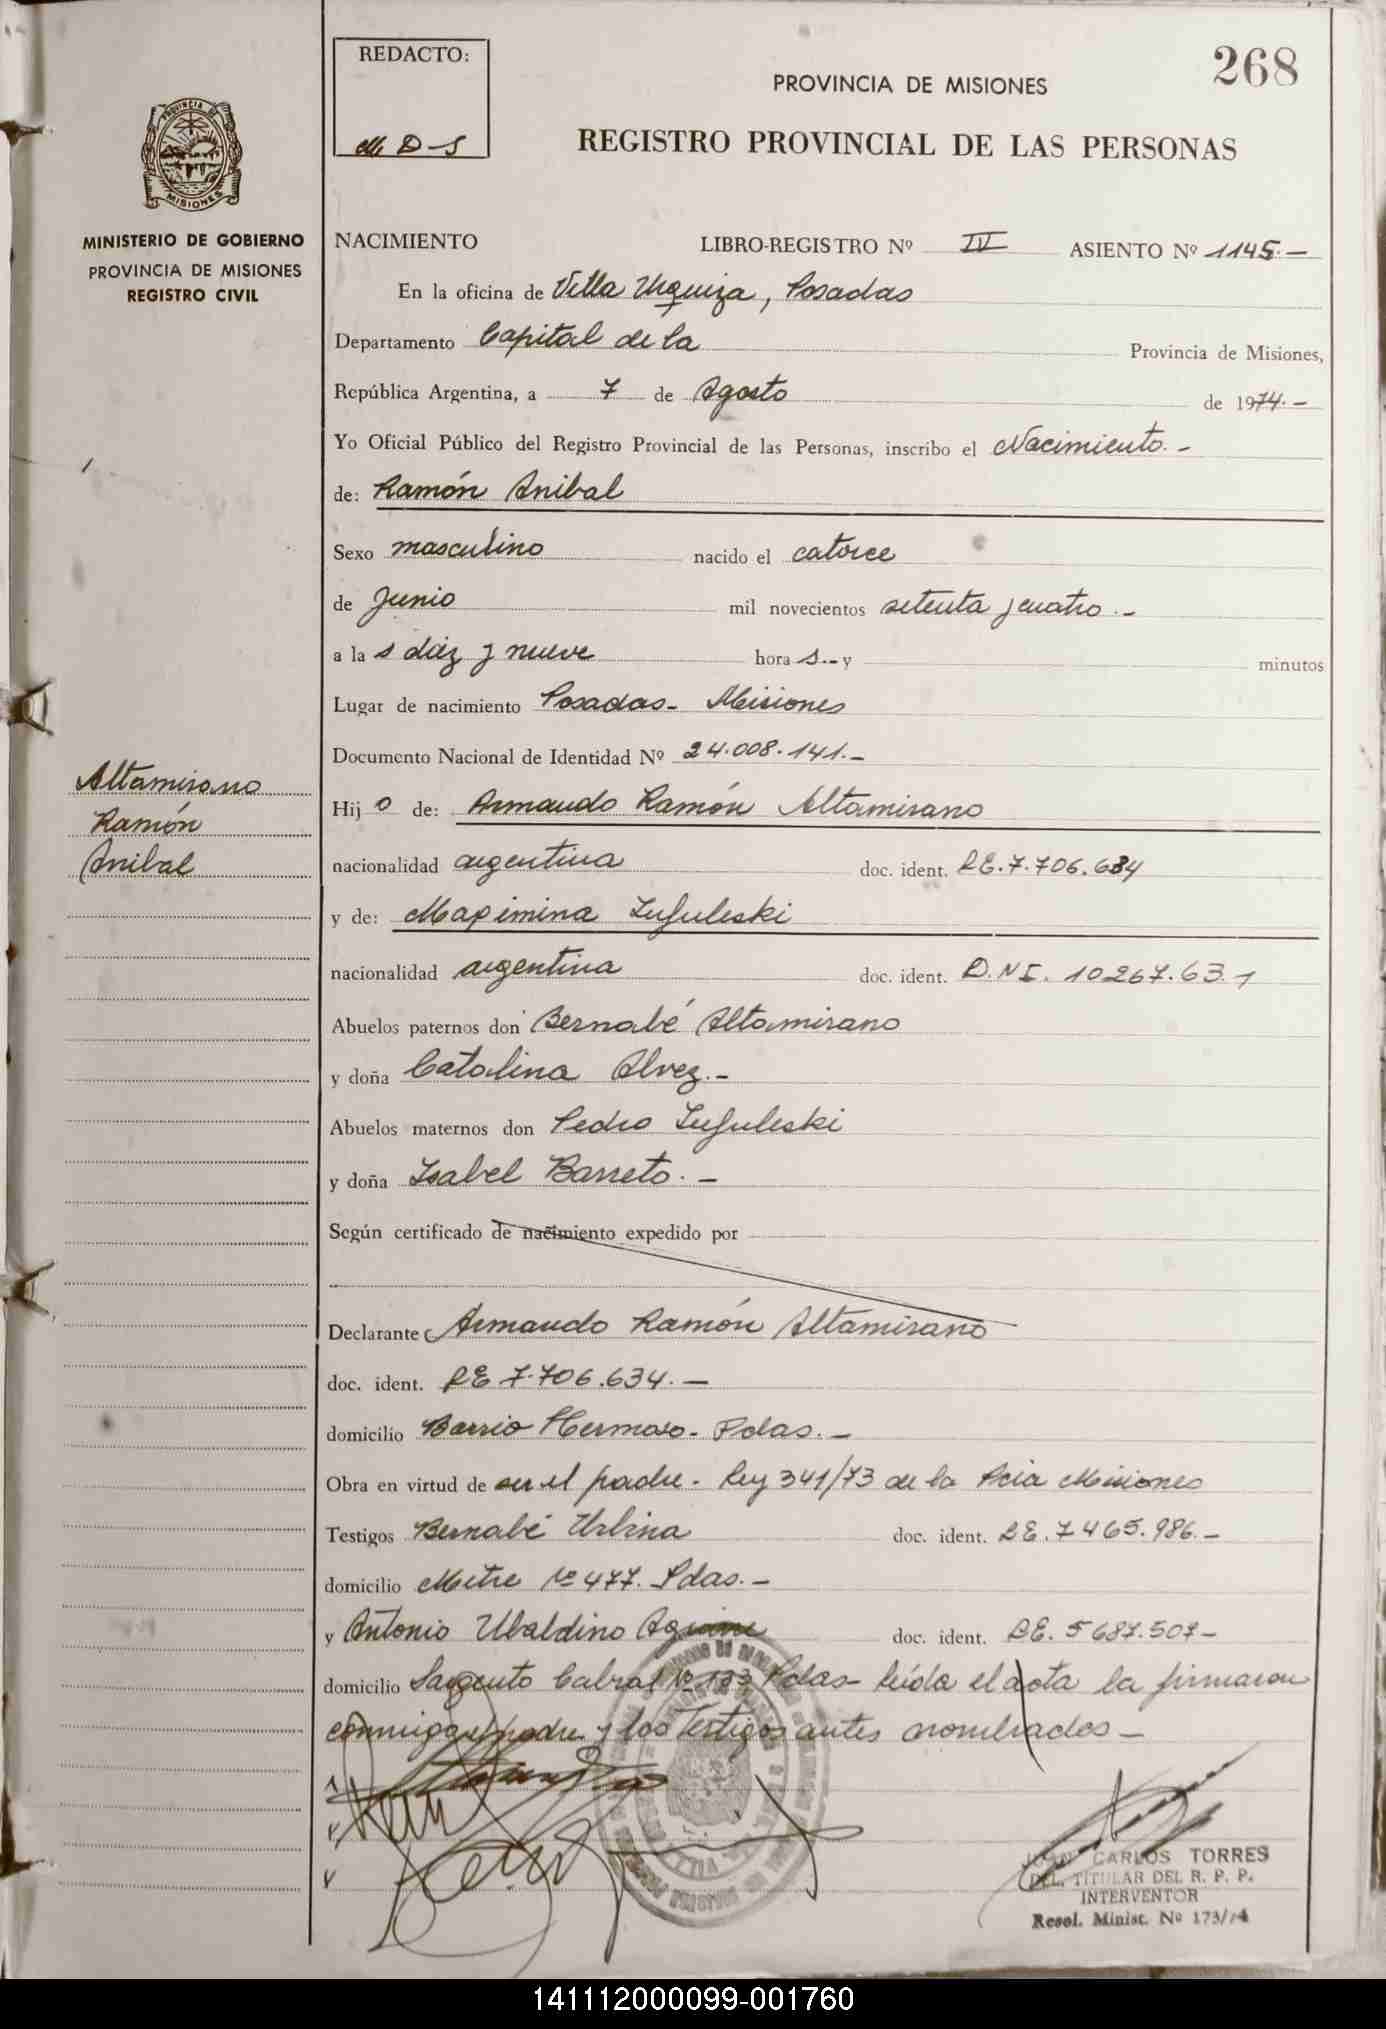 REDACTO:
M. D-S
268
PROVINCIA DE MISIONES
REGISTRO PROVINCIAL DE LAS PERSONAS
PROVINCIA DE
MISIONES
MINISTERIO DE GOBIERNO
PROVINCIA DE MISIONES
REGISTRO CIVIL
NACIMIENTO LIBRO-REGISTRO Nº IV ASIENTO Nº 1145.-
En la oficina de Villa Urquiza, Posadas
Departamento Capital de la Provincia de Misiones,
República Argentina, a 7 de Agosto de 1974.-
Yo Oficial Público del Registro Provincial de las Personas, inscribo el Nacimiento.-
de: Ramón Anibal
Sexo masculino nacido el catorce
de Junio mil novecientos setenta y cuatro.-
a la s diez y nueve hora s.- y minutos
Lugar de nacimiento Posadas- Misiones
Documento Nacional de Identidad Nº 24.008.141.-
Altamirano
Ramón
Anibal
Hij o de: Armando Ramón Altamirano
nacionalidad argentina doc. ident. LE.7.706.634
y de: Maximina Lufuleski
nacionalidad argentina doc. ident. D.NI. 10267.631
Abuelos paternos don Bernabé Altamirano
y doña Catalina Alvez.-
Abuelos maternos don Pedro Lufuleski
y doña Isabel Barreto.-
Según certificado de nacimiento expedido por
Declarante Armando Ramón Altamirano
doc. ident. LE 7.706.634.-
domicilio Barrio Hermoso- Pdas.-
Obra en virtud de ser el padre- Ley 341/73 de la Pcia Misiones
Testigos Bernabé Urbina doc. ident. LE.7465.986.-
domicilio Mitre Nº 477. Pdas.-
y Antonio Ubaldino Aguirre doc. ident. LE. 5687.507-
domicilio Sargento Cabral Nº 133 Pdas- leída el acta la firmaron
conmigo el padre y los testigos antes nombrados-
JUAN CARLOS TORRES
DEL. TITULAR DEL R. P. P.
INTERVENTOR
Resol. Minist. Nº 173/74
141112000099-001760